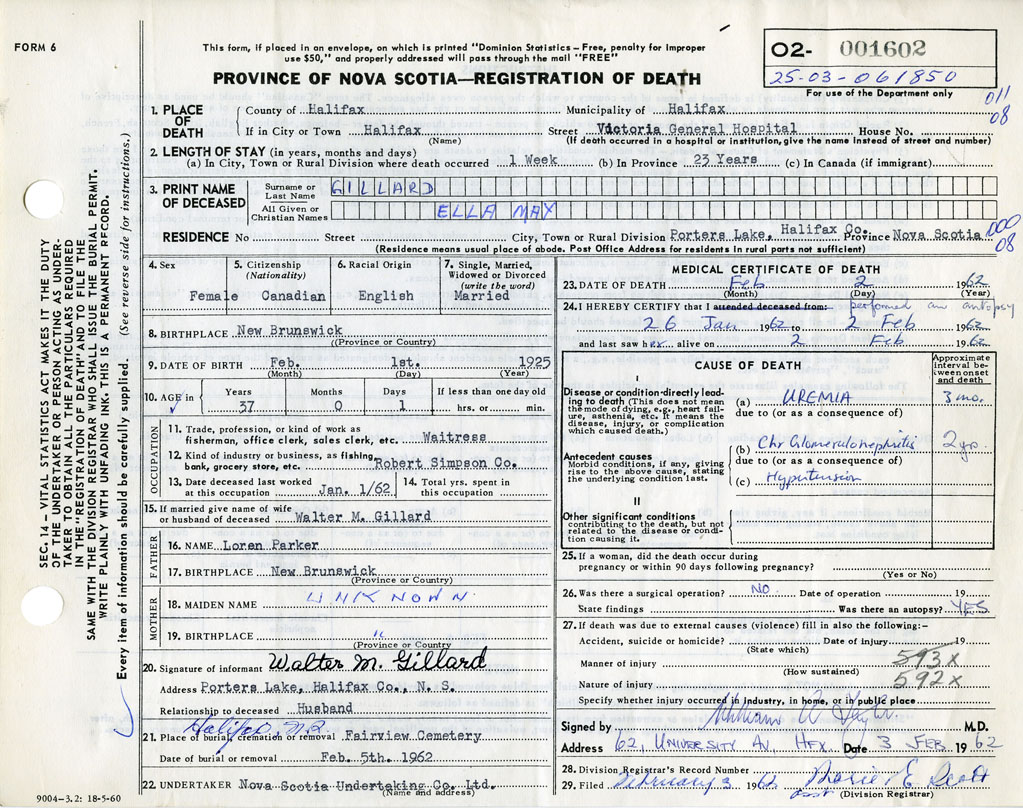 FORM 6
This form, if placed in an envelope, on which is printed "Dominion Statistics – Free, penalty for improper
use $50," and properly addressed will pass through the mail "FREE"
PROVINCE OF NOVA SCOTIA—REGISTRATION OF DEATH
02- 001602
25-03-061850
For use of the Department only
011
08
1. PLACE OF DEATH
County of Halifax Municipality of Halifax
If in City or Town Halifax Street Victoria General Hospital House No.
(Name) (If death occurred in a hospital or institution, give the name instead of street and number)
2. LENGTH OF STAY (in years, months and days)
(a) In City, Town or Rural Division where death occurred 1 Week (b) In Province 23 Years (c) In Canada (if immigrant)
3. PRINT NAME OF DECEASED
Surname or Last Name GILLARD
All Given or Christian Names ELLA MAY
RESIDENCE No Street City, Town or Rural Division Porters Lake, Halifax Co. Province Nova Scotia
000
08
(Residence means usual place of abode. Post Office Address for residents in rural parts not sufficient)
4. Sex Female
5. Citizenship (Nationality) Canadian
6. Racial Origin English
7. Single, Married, Widowed or Divorced (write the word) Married
8. BIRTHPLACE New Brunswick
(Province or Country)
9. DATE OF BIRTH Feb. 1st. 1925
(Month) (Day) (Year)
10. AGE in Years Months Days If less than one day old
37 0 1 hrs. or min.
OCCUPATION
11. Trade, profession, or kind of work as
fisherman, office clerk, sales clerk, etc. Waitress
12. Kind of industry or business, as fishing,
bank, grocery store, etc. Robert Simpson Co.
13. Date deceased last worked
at this occupation Jan. 1/62
14. Total yrs. spent in
this occupation
15. If married give name of wife
or husband of deceased Walter M. Gillard
FATHER
16. NAME Loren Parker
17. BIRTHPLACE New Brunswick
(Province or Country)
MOTHER
18. MAIDEN NAME UNKNOWN
19. BIRTHPLACE "
(Province or Country)
20. Signature of informant Walter M. Gillard
Address Porters Lake, Halifax Co., N. S.
Relationship to deceased Husband
Halifax, N.S.
21. Place of burial, cremation or removal Fairview Cemetery
Date of burial or removal Feb. 5th. 1962
22. UNDERTAKER Nova Scotia Undertaking Co. Ltd.
(Name and address)
MEDICAL CERTIFICATE OF DEATH
23. DATE OF DEATH Feb 2 1962
(Month) (Day) (Year)
24. I HEREBY CERTIFY that I attended deceased from: performed an autopsy
26 Jan 1962 to 2 Feb 1962
and last saw her alive on 2 Feb 1962
CAUSE OF DEATH
Approximate interval between onset and death
I
Disease or condition directly leading to death (This does not mean the mode of dying, e.g., heart failure, asthenia, etc. It means the disease, injury, or complication which caused death.)
(a) UREMIA 3 mo.
due to (or as a consequence of)
Antecedent causes
Morbid conditions, if any, giving rise to the above cause, stating the underlying condition last.
(b) Chr Glomerulonephritis 2 yr.
due to (or as a consequence of)
(c) Hypertension
II
Other significant conditions
contributing to the death, but not related to the disease or condition causing it.
25. If a woman, did the death occur during
pregnancy or within 90 days following pregnancy?
(Yes or No)
26. Was there a surgical operation? NO Date of operation 19
State findings Was there an autopsy? YES
27. If death was due to external causes (violence) fill in also the following:–
Accident, suicide or homicide? Date of injury 19
(State which)
Manner of injury 593X
(How sustained)
Nature of injury 592X
Specify whether injury occurred in industry, in home, or in public place
Signed by William A Taylor M.D.
Address 62, UNIVERSITY AV, HFX Date 3 FEB 1962
28. Division Registrar's Record Number
29. Filed February 3 1962 Marie E. Scott
asst (Division Registrar)
SEC. 14 – VITAL STATISTICS ACT MAKES IT THE DUTY
OF THE UNDERTAKER OR PERSON ACTING AS UNDER-
TAKER TO OBTAIN ALL THE PARTICULARS REQUIRED
IN THE "REGISTRATION OF DEATH" AND TO FILE THE
SAME WITH THE DIVISION REGISTRAR WHO SHALL ISSUE THE BURIAL PERMIT.
WRITE PLAINLY WITH UNFADING INK. THIS IS A PERMANENT RECORD.
Every item of information should be carefully supplied. (See reverse side for instructions.)
9004-3.2: 18-5-60